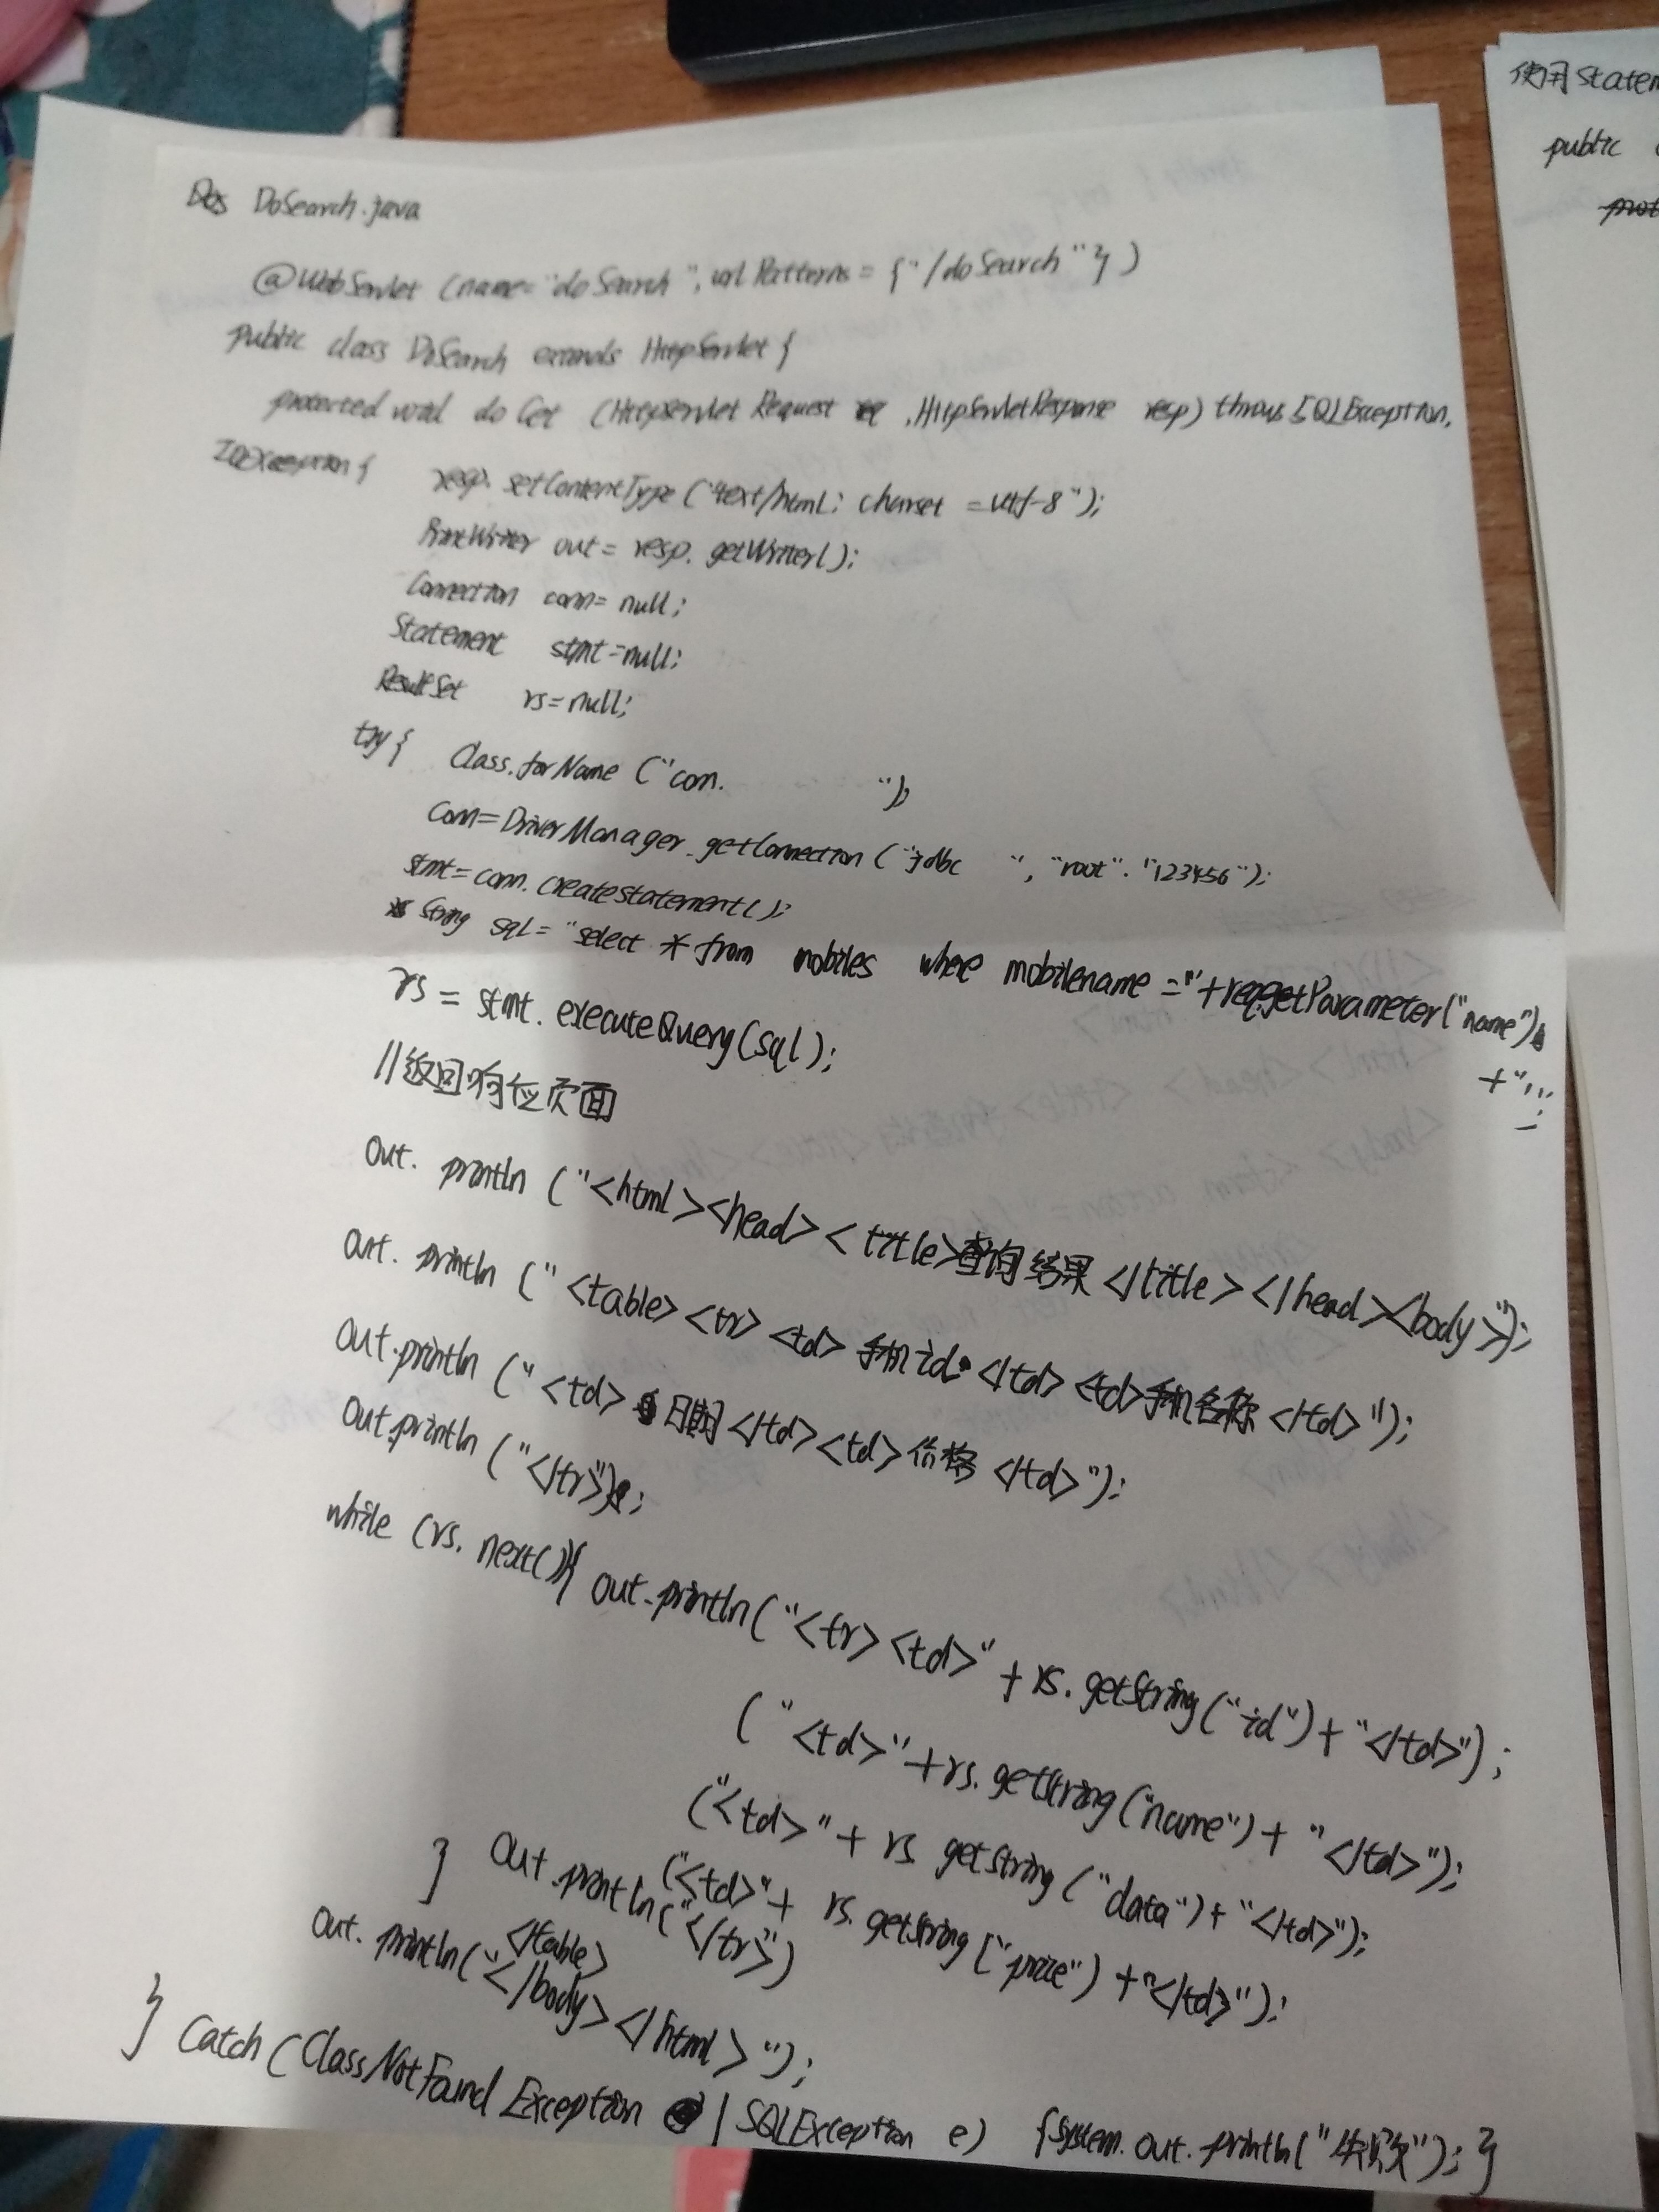 DoSearch.java
@WebServlet (name="doSearch", urlPatterns = {"/doSearch"})
public class DoSearch extends HttpServlet {
protected void doGet (HttpServletRequest req, HttpServletResponse resp) throws SQLException,
IOException {
resp. setContentType ("text/html; charset =utf-8");
PrintWriter out = resp. getWriter();
Connection conn= null;
Statement stmt=null;
ResultSet rs=null;
try { Class.forName ("com. ");
conn=DriverManager.getConnection ("jdbc ", "root". "123456");
stmt=conn. createstatement();
String sql= "select * from mobiles where mobilename ='"+req.getParameter("name")
+"'";
rs = stmt. executeQuery(sql);
//返回响应页面
Out. println ("<html><head><title>查询结果</title></head><body>");
Out. println ("<table><tr><td>手机id</td><td>手机名称</td>");
Out.println ("<td>日期</td><td>价格</td>");
Out.println ("</tr>");
while (rs. next()){ out.println("<tr><td>"+rs.getString("id")+"</td>");
("<td>"+rs.getString("name")+"</td>");
("<td>"+ rs getString ("data")+"</td>");
("<td>"+ rs.getString("price") +"</td>");
} Out.println("</tr>")
</table>
Out. println("</body></html>");
} Catch (ClassNotFound Exception | SQLException e) {System. out. println("失败"); }
使用 Statem
public
prot